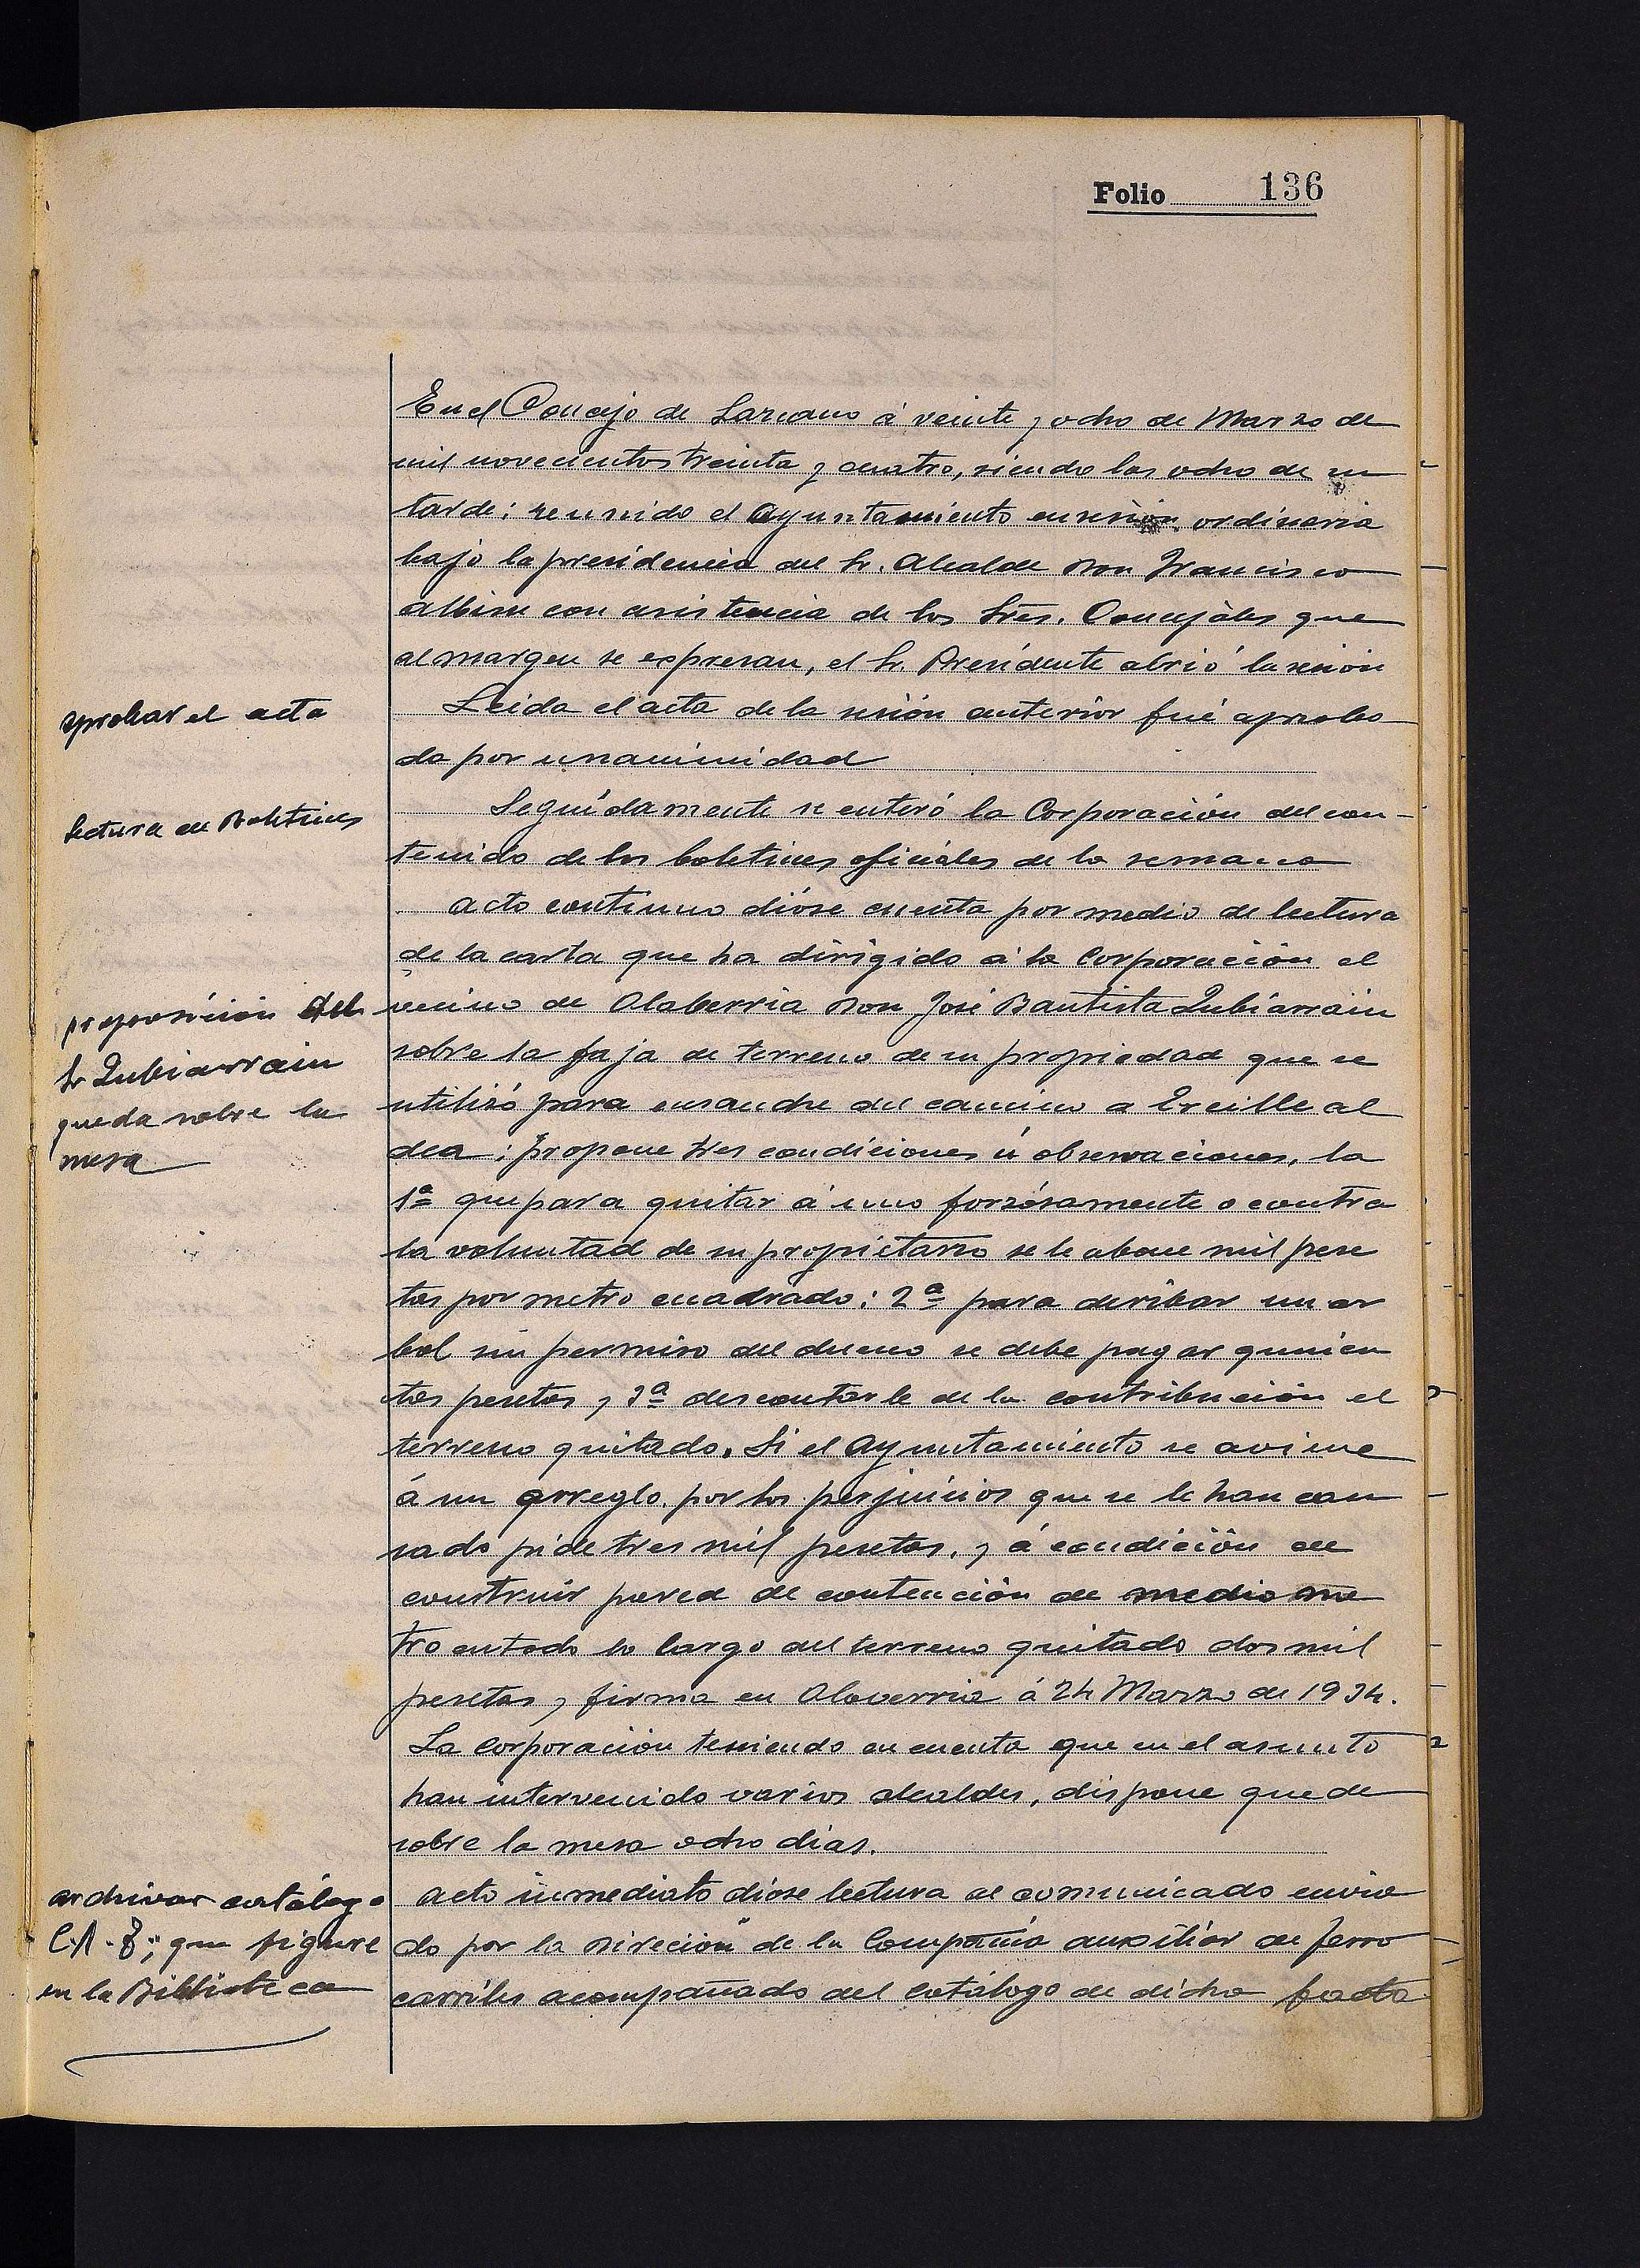 Folio 136
En el Concejo de Lazcano á veinte y ocho de Marzo de
mil novecientos treinta y cuatro, siendo las ocho de su
tarde: reunido el Ayuntamiento en sesión ordinaria
bajo la presidencia del Sr. Alcalde Don Francisco
Albisu con asistencia de los Sres. Concejáles que
al margen se expresan, el Sr. Presidente abrió la sesión
aprobar el acta
Leida el acta de la sesión anterior fué aproba
da por unanimidad
lectura de Boletines
Seguídamente se enteró la Corporación del con-
tenido de los boletines oficiales de la semana
acto continuo dióse cuenta por medio de lectura
de la carta que ha dirigido á la Corporación el
proposición del
Sr Zubiarrain
queda sobre la
mesa
vecino de Olaberria Don José Bautista Zubiarrain
sobre la faja de terreno de su propiedad que se
utilizó para ensanche del camino a Ercille al
dea: propone tres condiciones ú observaciones, la
1ª que para quitar á uno forzósamente o contra
la voluntad de su propietario se le abone mil pese
tas por metro cuadrado: 2ª para derribar un ar
bol sin permiso del dueno se debe pagar quinien
tas pesetas y 3ª descontarle de la contribución el
terreno quitado. Si el Ayuntamiento se aviene
á un arreglo por los perjuicios que se le han cau
sado pide tres mil pesetas, y á condición de
construir pared de contención de medio me
tro en todo lo largo del terreno quitado dos mil
pesetas y firma en Olaverria á 24 Marzo de 1934.
La Corporación teniendo en cuenta que en el asunto
han intervenido varios alcaldes, dispone quede
sobre la mesa ocho dias.
archivar catálogo
C.A.F; que figure
en la Biblioteca
acto inmediato dióse lectura al comunicado envia
do por la Direción de la Compañia auxiliár de ferro
carriles acompañado del catálogo de dicha facto